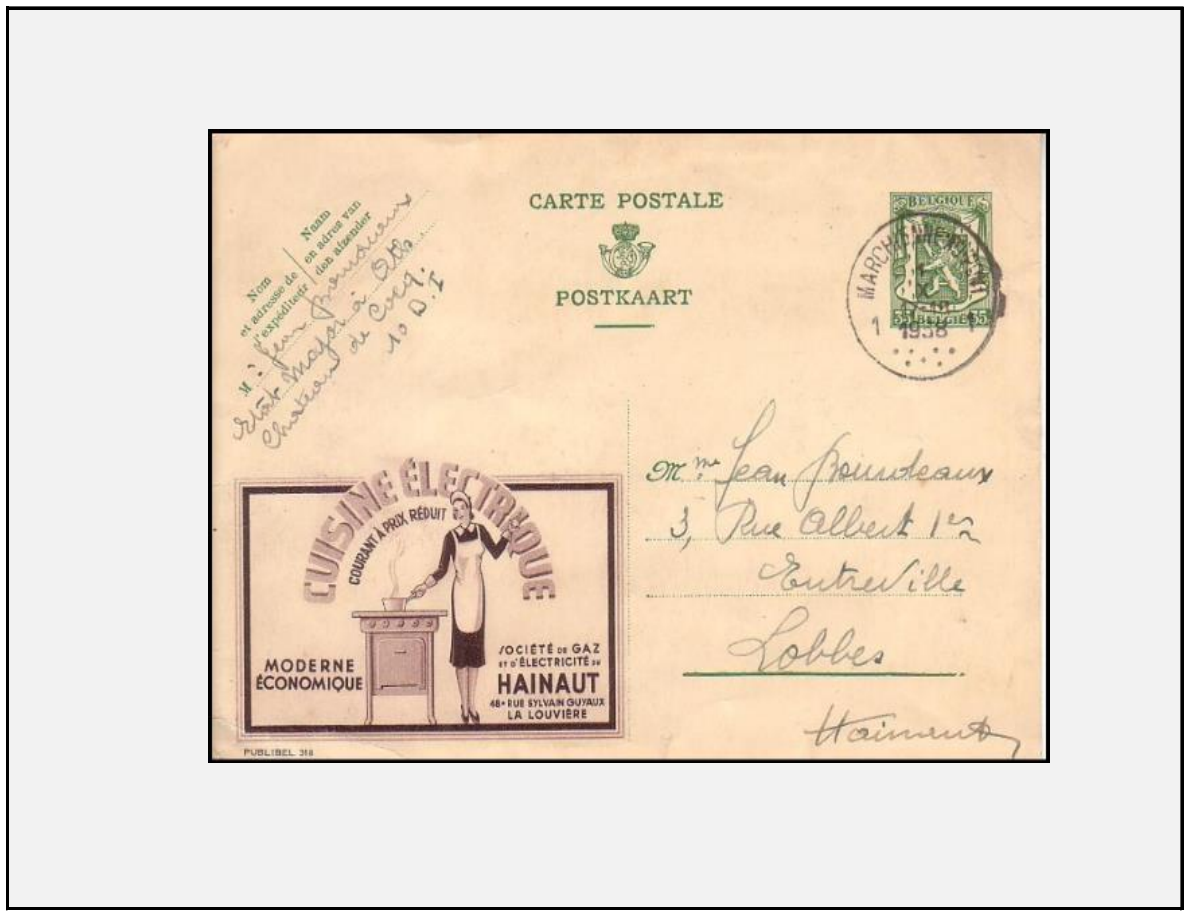 CARTE POSTALE
POSTKAART
Nom
et adresse de
l'expéditeur
Naam
en adres van
den afzender
M. Jean Bourdeaux
Etat Major à Ath
Chateau de Cocq.
10 D.I
BELGIQUE
35 BELGIË 35
MARCHIENNE
1 1938 1
Mme Jean Bourdeaux
3, Rue Albert 1er
Entreville
Lobbes
Hainaut
CUISINE ÉLECTRIQUE
COURANT À PRIX RÉDUIT
MODERNE
ÉCONOMIQUE
SOCIÉTÉ DE GAZ
ET D'ÉLECTRICITÉ DU
HAINAUT
48 • RUE SYLVAIN GUYAUX
LA LOUVIÈRE
PUBLIBEL 318